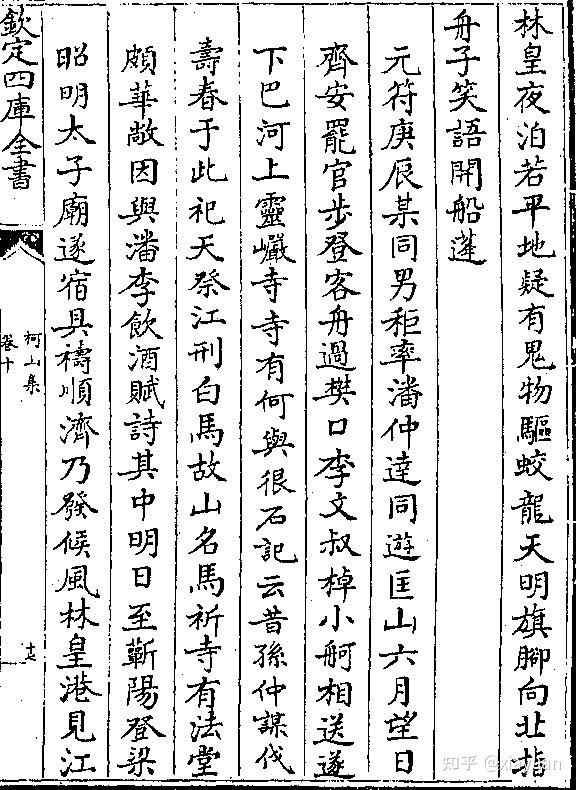 林皇夜泊若平地疑有鬼物驅蛟龍天明旗腳向北指
舟子笑語開船蓬
元符庚辰某同男秬率潘仲達同遊匡山六月望日
齊安罷官步登客舟過樊口李文叔棹小舸相送遂
下巴河上靈巗寺寺有何與很石記云昔孫仲謀伐
壽春于此祀天祭江刑白馬故山名馬祈寺有法堂
頗華敞因與潘李飲酒賦詩其中明日至蘄陽登梁
昭明太子廟遂宿具禱順濟乃發候風林皇港見江
欽定四庫全書
柯山集
卷十
十七
知乎